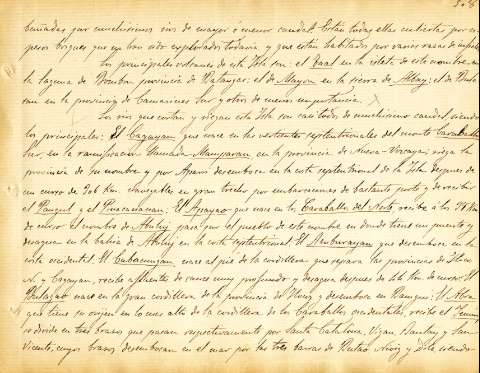 bañadas por muchísimos ríos de mayor o menor caudal. Están todas ellas cubiertas por es-
pesos bosques que no han sido explorados todavía, y que están habitados por varias razas de
Los principales volcanes de esta Isla son: el Taal en la isleta de este nombre en
la laguna de Bombon provincia de Batangas: el de Mayon en la sierra de Albay: el de
en la provincia de Camarines Sur y otros de menos importancia.
Los ríos que cortan y riegan esta Isla son casi todos de muchísimo caudal, siendo
los principales: El Cagayan que nace en las vertientes septentrionales del monte Caraballo
Sur, en la ramificación llamada Mamparan en la provincia de Nueva-Vizcaya: riega la
provincia de su nombre y por Aparri desemboca en la costa septentrional de la Isla después de
un curso de 306 Km. navegables en gran trecho por embarcaciones de bastante porte y de recibir
el y el El Apayao que nace en los Caraballos del Norte recibe a los
de curso el nombre de Abulug pasa por el pueblo de este nombre en donde tiene un puerto y
desagua en la bahía de Abulug en la costa septentrional. El que desemboca en la
costa occidental. El nace al pie de la cordillera que separa las provincias de Ilocos
N. y Cagayan, recibe afluentes de cauce muy profundo y desagua después de Km. de curso. El
nace en la gran cordillera de la provincia de Ilocos y desemboca en Bangui: El Abra
que tiene su origen en lo más alto de la cordillera de los Caraballos occidentales, recibe el
se divide en tres brazos que pasan respectivamente por Santa Catalina, Vigan, Bantay y San
Vicente, cuyos brazos desembocan en el mar por las tres barras de Butao, Nioig y Dile siendo